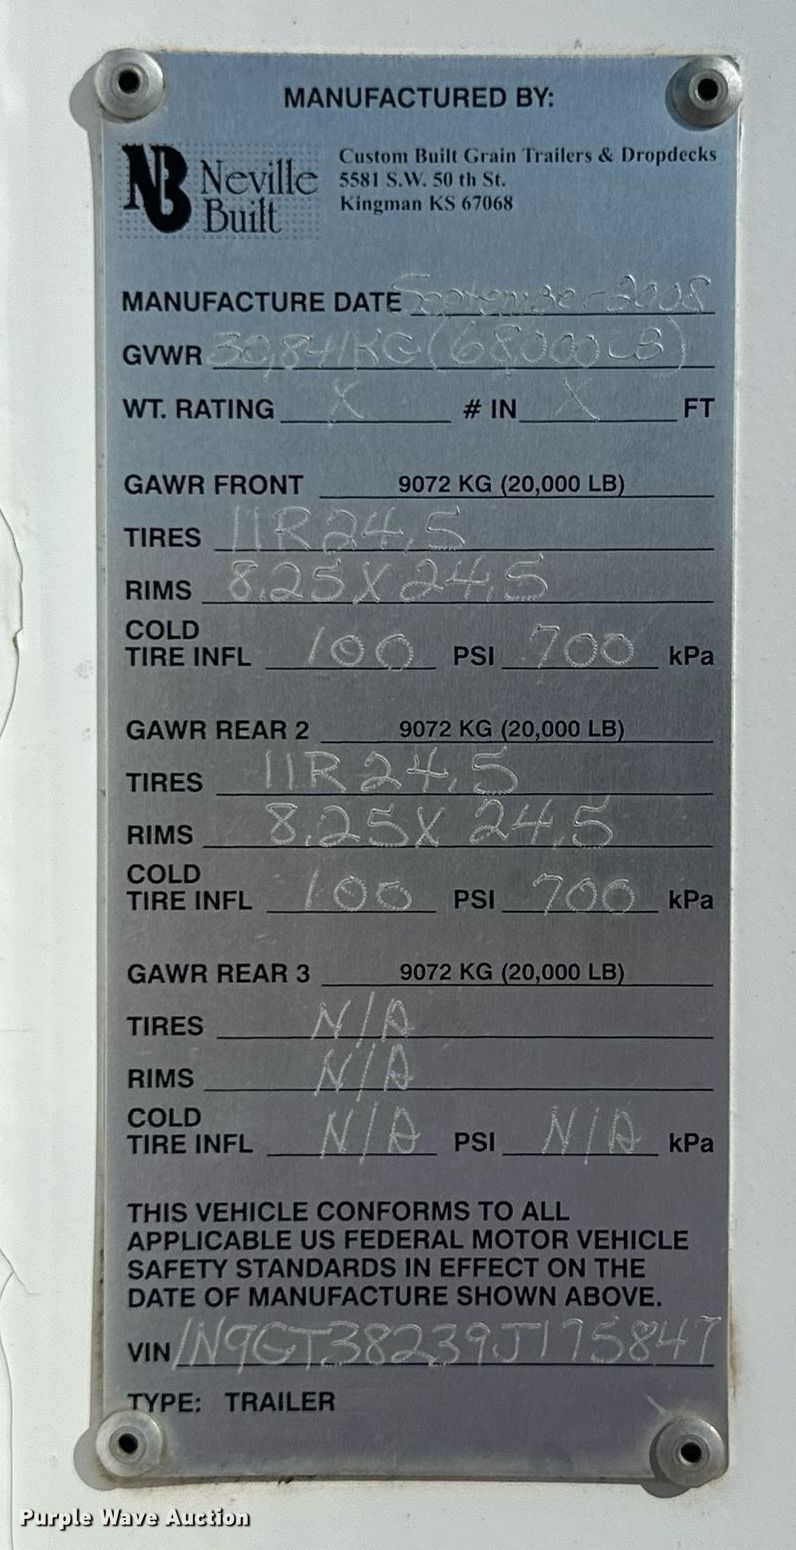 MANUFACTURED BY:
NB Neville Built
Custom Built Grain Trailers & Dropdecks
5581 S.W. 50 th St.
Kingman KS 67068
MANUFACTURE DATE September 2008
GVWR 30,841KG (68,000LB)
WT. RATING X # IN X FT
GAWR FRONT 9072 KG (20,000 LB)
TIRES 11R24.5
RIMS 8.25X24.5
COLD
TIRE INFL 100 PSI 700 kPa
GAWR REAR 2 9072 KG (20,000 LB)
TIRES 11R24.5
RIMS 8.25X 24.5
COLD
TIRE INFL 100 PSI 700 kPa
GAWR REAR 3 9072 KG (20,000 LB)
TIRES N/A
RIMS N/A
COLD
TIRE INFL N/A PSI N/A kPa
THIS VEHICLE CONFORMS TO ALL
APPLICABLE US FEDERAL MOTOR VEHICLE
SAFETY STANDARDS IN EFFECT ON THE
DATE OF MANUFACTURE SHOWN ABOVE.
VIN 1N9GT38239J175847
TYPE: TRAILER
Purple Wave Auction